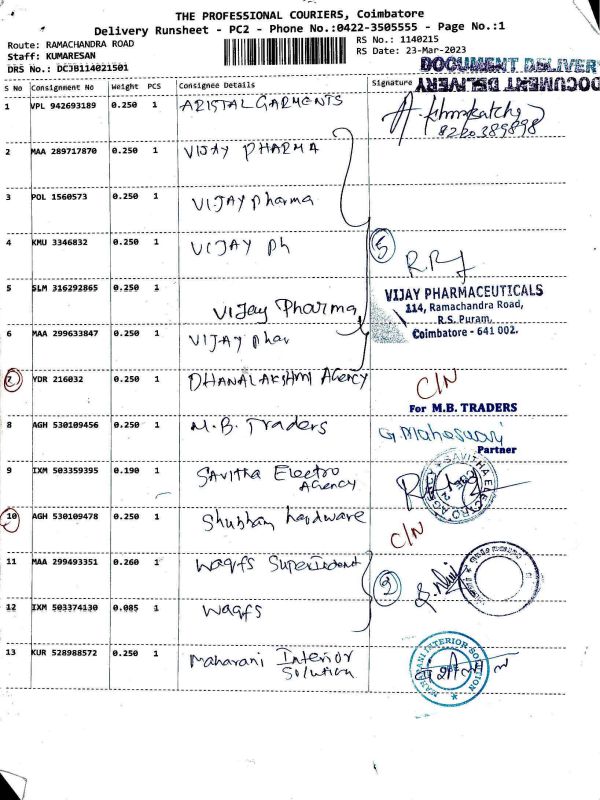 THE PROFESSIONAL COURIERS, Coimbatore
Delivery Runsheet - PC2 - Phone No.:0422-3505555 - Page No.:1
Route: RAMACHANDRA ROAD
RS No.: 1140215
Staff: KUMARESAN
RS Date: 23-Mar-2023
DRS No.: DCJB114021501
DOCUMENT DELIVER
DOCUMENT DELIVERY
S No Consignment No Weight PCS Consignee Details Signature
1 VPL 942693189 0.250 1 ARISTAL GARMENTS
8220389898
2 MAA 289717870 0.250 1 VIJAY PHARMA
3 POL 1560573 0.250 1 VIJAY Pharma
4 KMU 3346832 0.250 1 VIJAY Ph
5
5 SLM 316292865 0.250 1 Vijay Pharma
VIJAY PHARMACEUTICALS
114, Ramachandra Road,
R.S. Puram,
Coimbatore - 641 002.
6 MAA 299633847 0.250 1 VIJAY Phar
7 YDR 216032 0.250 1 DHANALAKSHMI AGENCY C/N
8 AGH 530109456 0.250 1 M.B. Traders
For M.B. TRADERS
G. Maheswari
Partner
9 IXM 503359395 0.190 1 Savitha Electro
Agency
SAVITHA ELECTRO AGENCY
10 AGH 530109478 0.250 1 Shubham hardware C/N
11 MAA 299493351 0.260 1 Waqfs Supertendent
2
12 IXM 503374130 0.085 1 Waqfs
13 KUR 528988572 0.250 1 Maharani Interior
Solution
MAHARANI INTERIOR SOLUTION